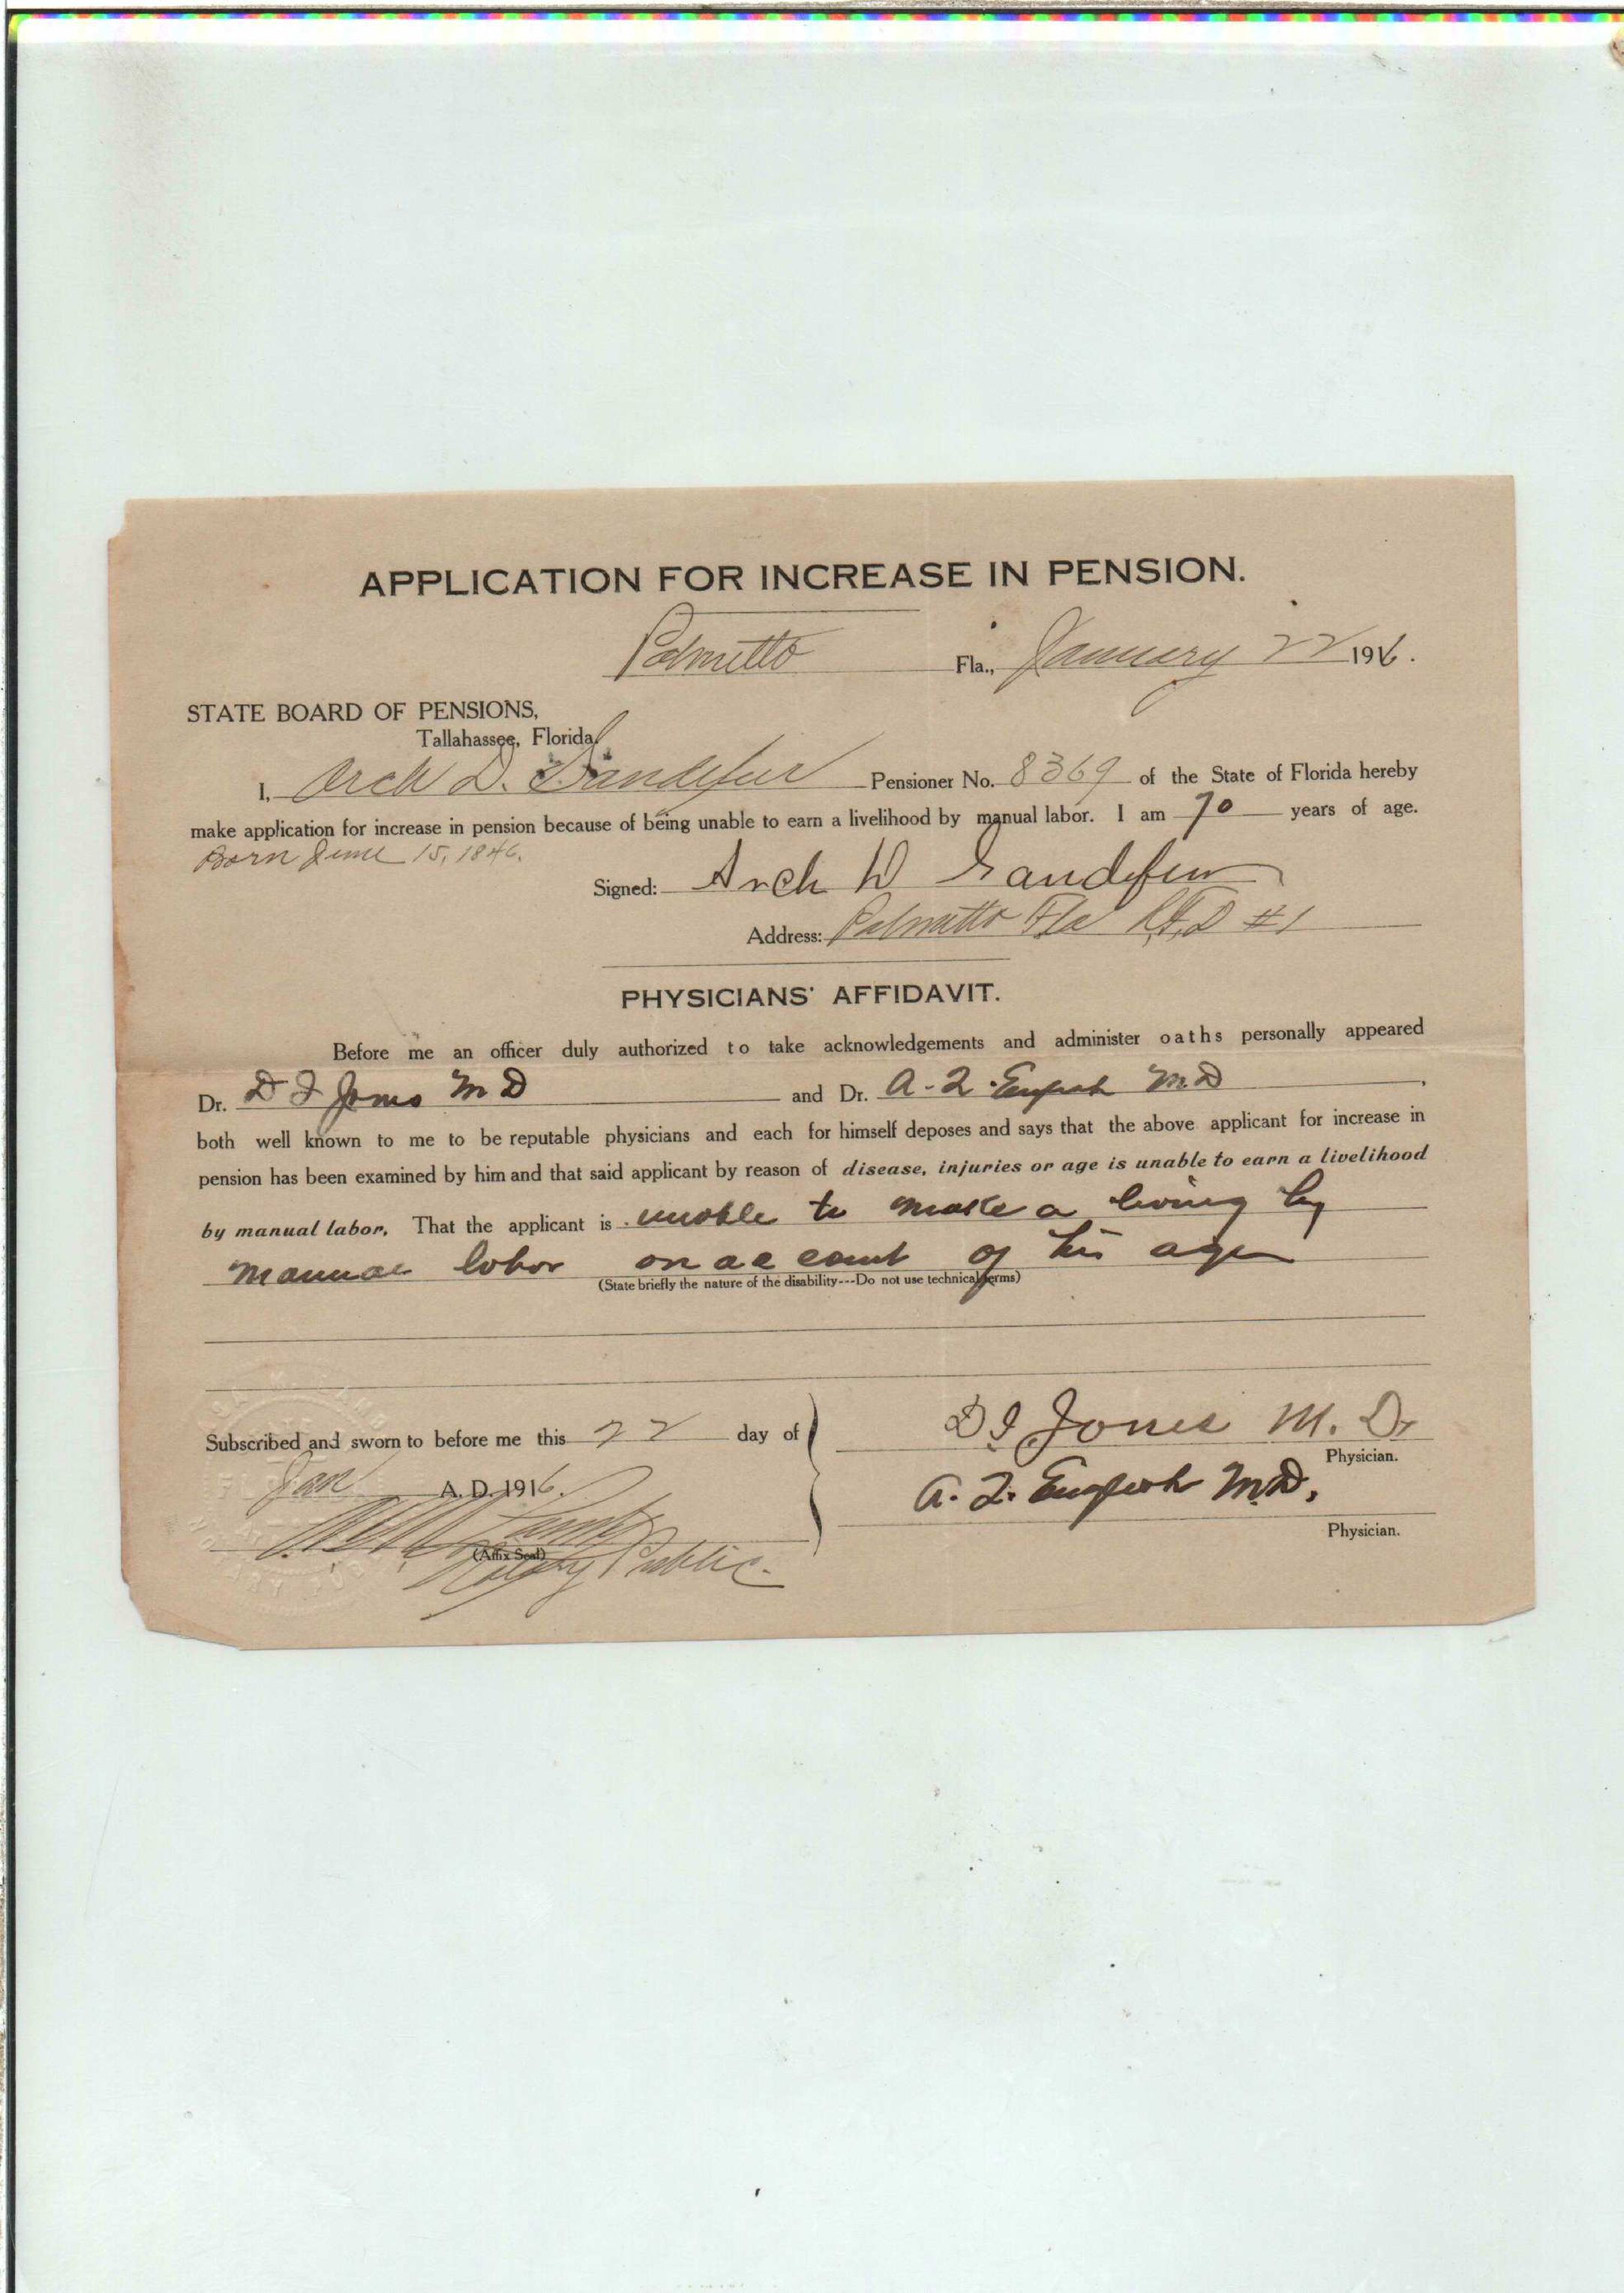 APPLICATION FOR INCREASE IN PENSION.
Palmetto Fla., January 22 1916.
STATE BOARD OF PENSIONS,
Tallahassee, Florida
I, Arch D. Sandefur Pensioner No. 8369 of the State of Florida hereby
make application for increase in pension because of being unable to earn a livelihood by manual labor. I am 70 years of age.
Born June 15, 1846.
Signed: Arch D Sandefur
Address: Palmetto Fla R.F.D #1
PHYSICIANS' AFFIDAVIT.
Before me an officer duly authorized to take acknowledgements and administer oaths personally appeared
Dr. D I Jones M D and Dr. A. Z. English M D,
both well known to me to be reputable physicians and each for himself deposes and says that the above applicant for increase in
pension has been examined by him and that said applicant by reason of disease, injuries or age is unable to earn a livelihood
by manual labor. That the applicant is unable to make a living by
manual labor on account of his age
(State briefly the nature of the disability---Do not use technical terms)
Subscribed and sworn to before me this 22 day of
Jan A. D. 1916.
(Affix Seal)
Notary Public.
D I Jones M. D.
Physician.
A. Z. English M.D.
Physician.